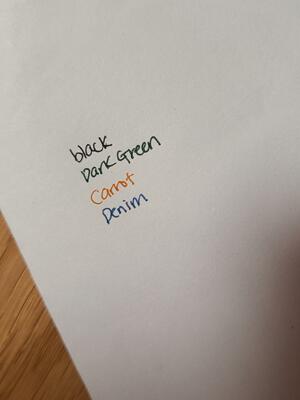 black
Dark Green
Carrot
Denim